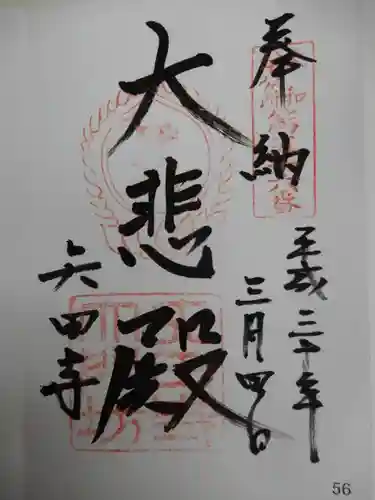 奉納
平成三十年
三月四日
大悲殿
矢田寺
56